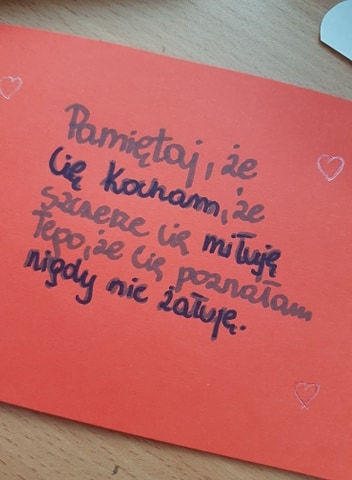 Pamiętaj, że
Cię Kocham, że
szczerze Cię miłuję
tego, że Cię poznałam
nigdy nie żałuję.